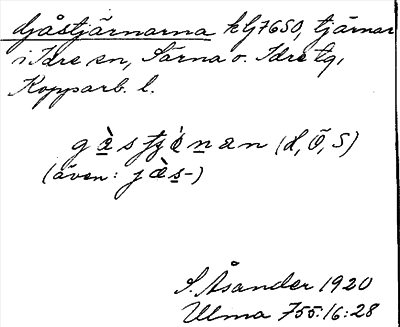 djåstjärnarna kG7650, tjärnar
i Idre sn, Särna o. Idre tg,
Kopparb. l.
gàstjénan (L, Ö, S)
(även: jàs-)
S. Åsander 1920
Ulma 755:16:28